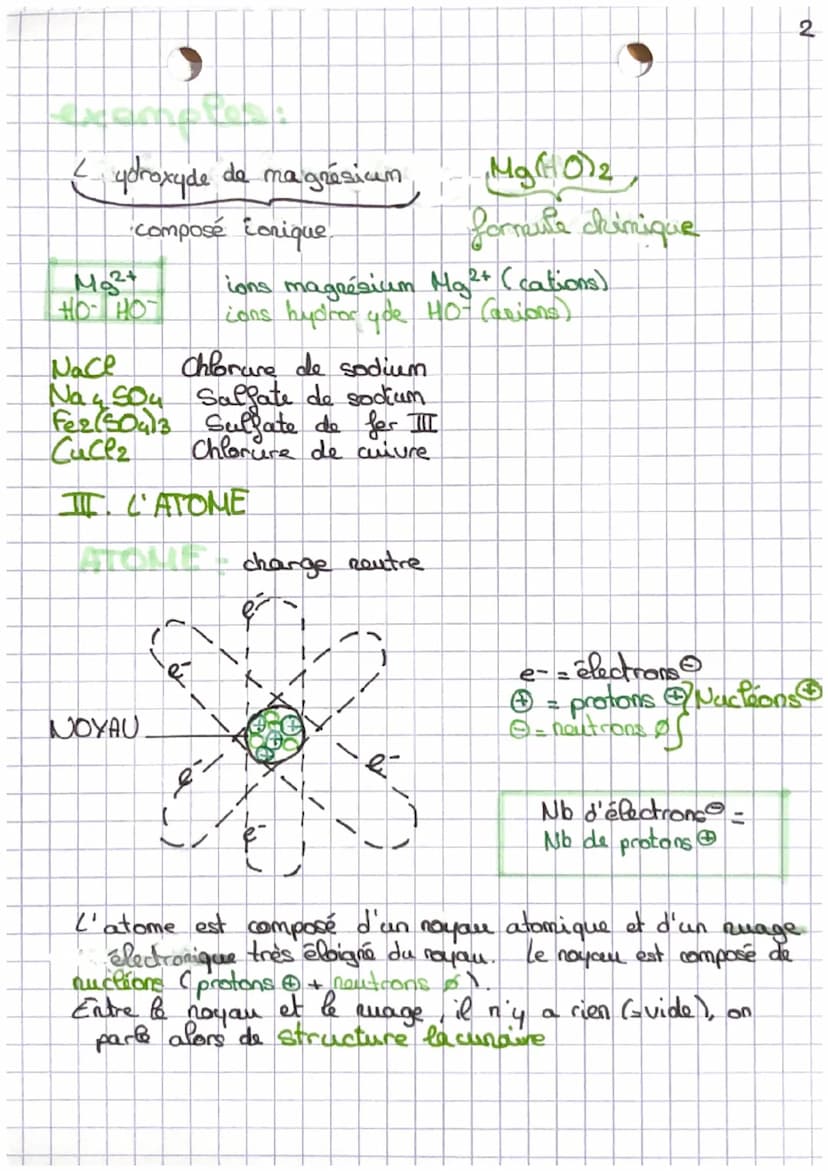 2
exemples:
L'hydroxyde de magnésium Mg(HO)2
composé ionique. formule chimique
Mg2+ ions magnésium Mg2+ (cations)
HO- HO- ions hydroxyde HO- (anions)
NaCl Chlorure de sodium
Na4SO4 Sulfate de sodium
Fe2(SO4)3 Sulfate de fer III
CuCl2 Chlorure de cuivre
III. L'ATOME
ATOME = charge neutre
e-
e-
NOYAU
e-
e-
e-
e- = électrons ⊖
⊕ = protons ⊕ } Nucléons ⊕
⊖ = neutrons ø
Nb d'électrons ⊖ =
Nb de protons ⊕
L'atome est composé d'un noyau atomique et d'un nuage
électronique très éloigné du noyau. Le noyau est composé de
nucléons (protons ⊕ + neutrons ø).
Entre le noyau et le nuage, il n'y a rien (=vide), on
parle alors de structure lacunaire